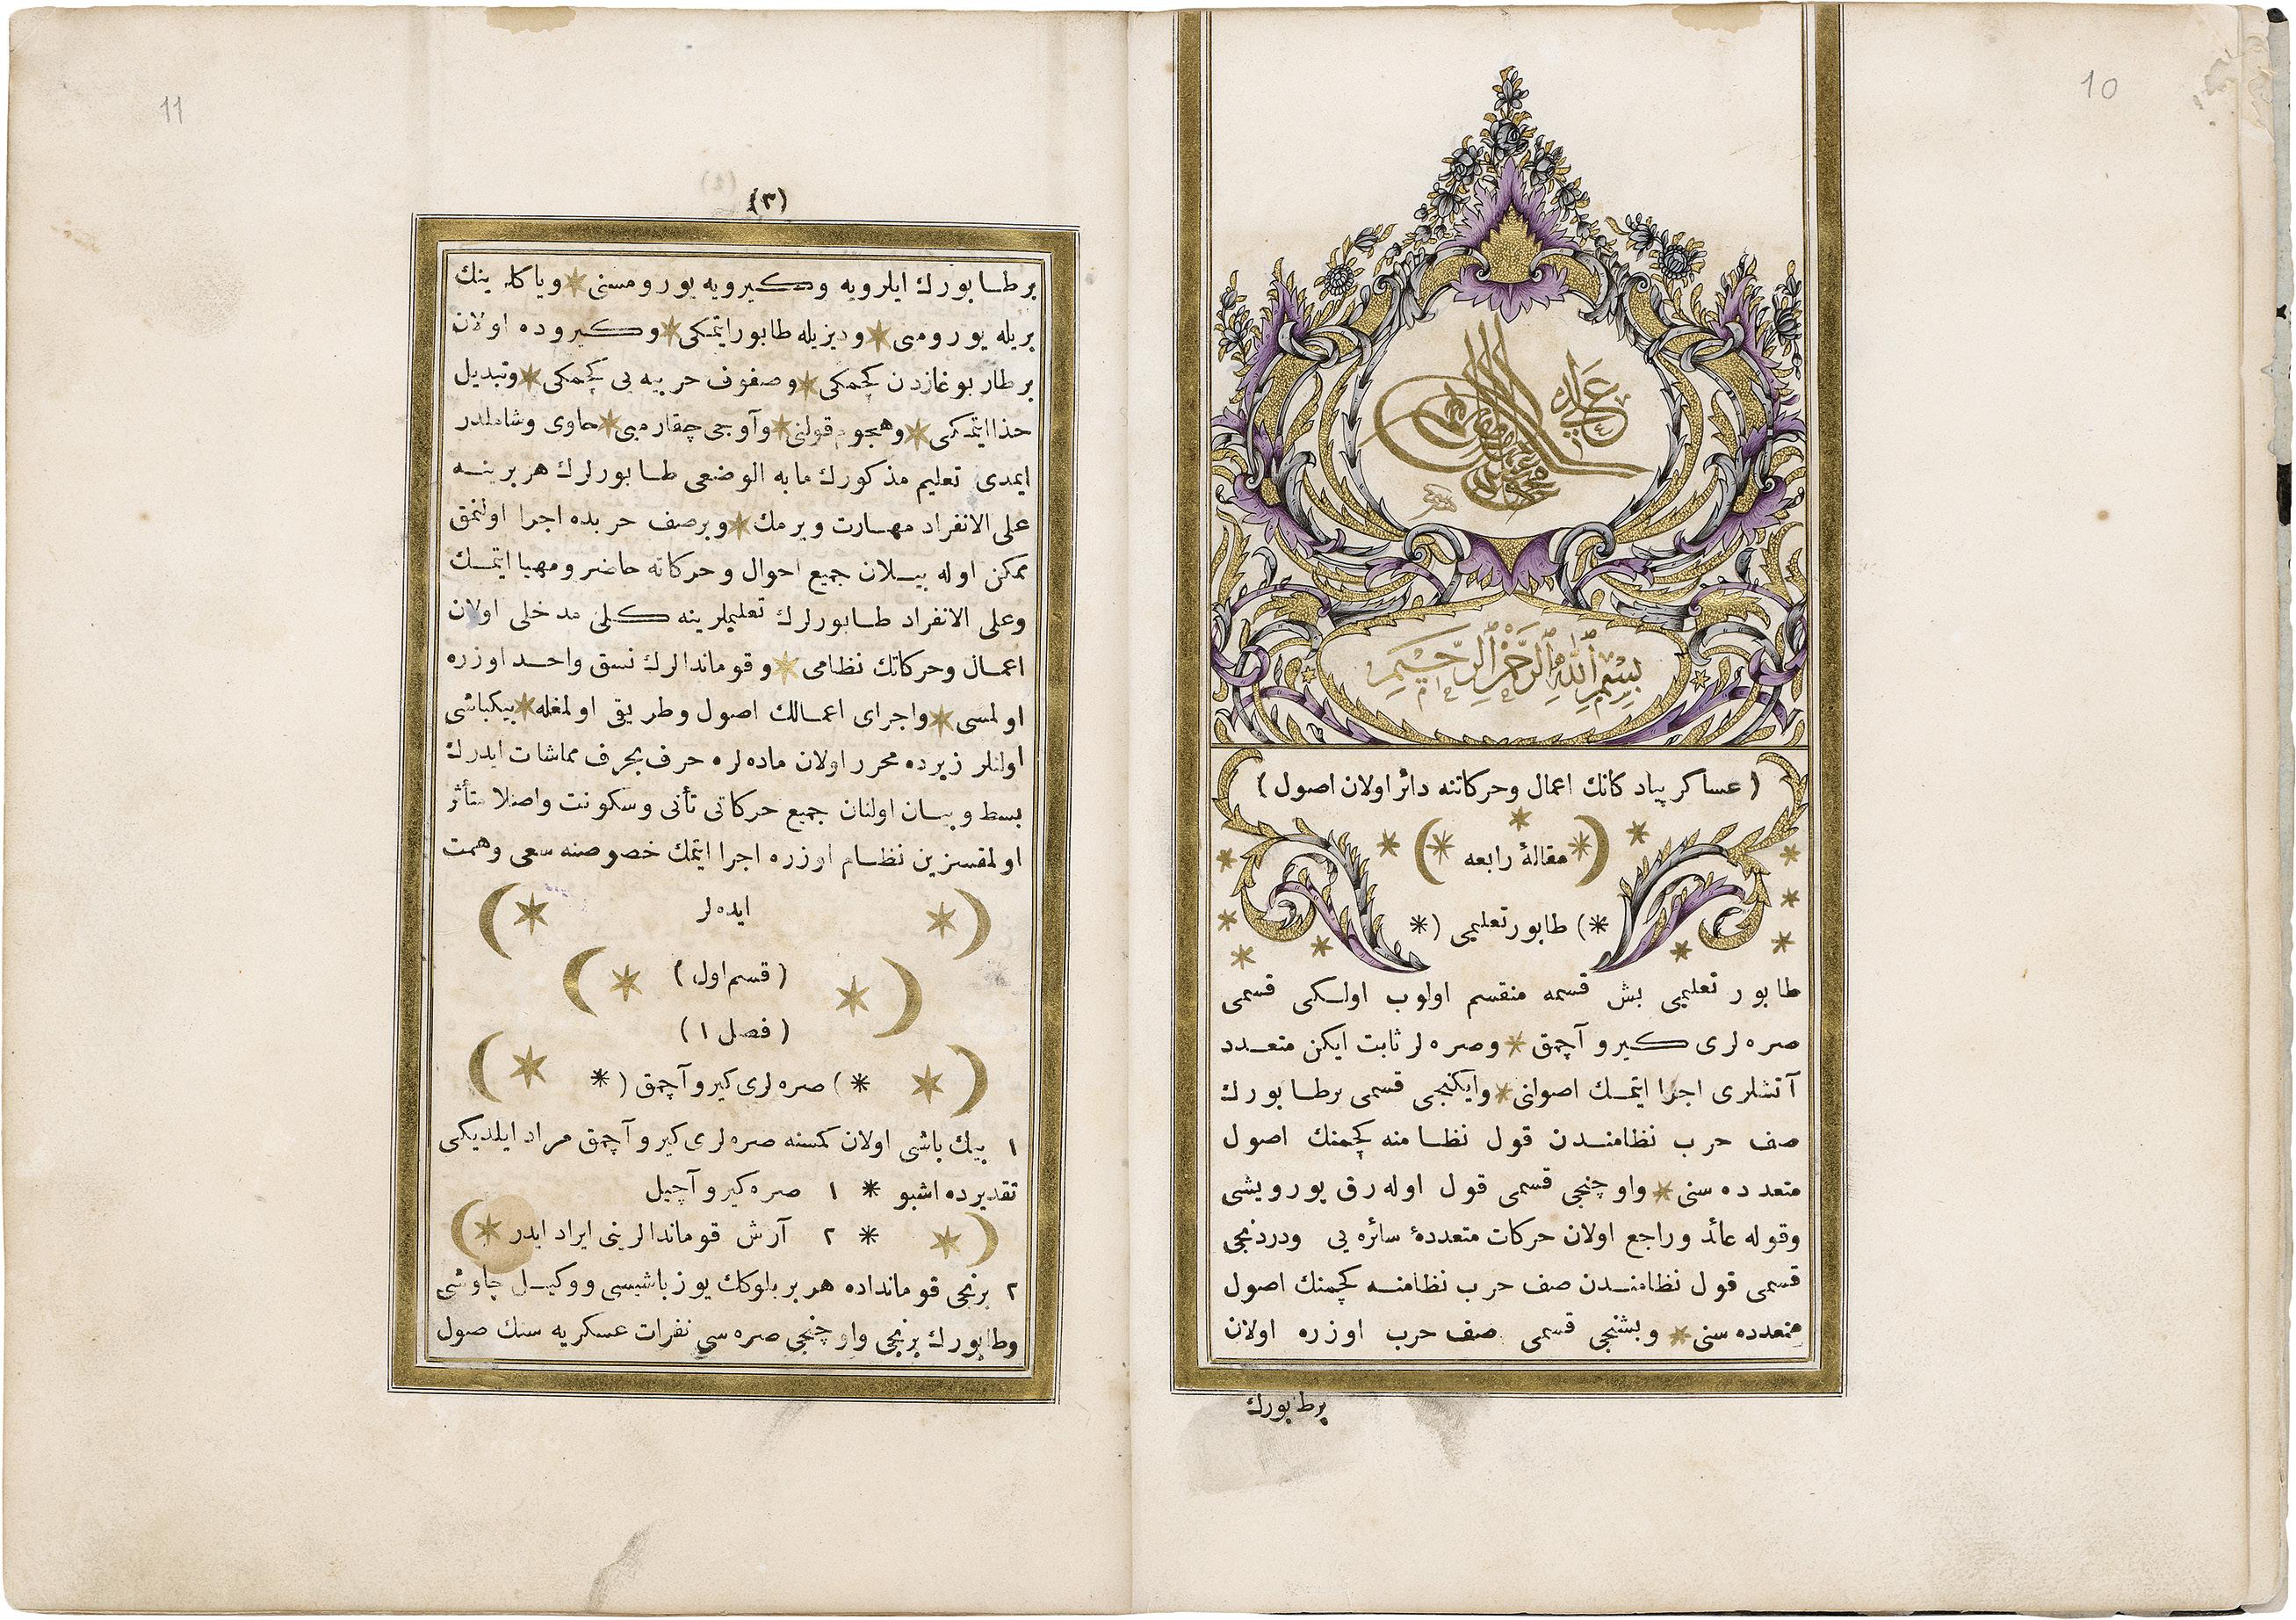 10
بِسْمِ ٱللّٰهِ ٱلرَّحْمٰنِ ٱلرَّحِيمِ
( عساكر پیاده كانك اعمال وحركاتنه دائر اولان اصول )
(* مقالهٔ رابعه *)
*) طابور تعلیمی (*
طابور تعلیمی بش قسمه منقسم اولوب اولكی قسمی
صره لری كیرو آچمق * وصره لر ثابت ایكن متعدد
آتشلری اجرا ایتمك اصولنی * وایكنجی قسمی بر طابورك
صف حرب نظامندن قول نظامنه كچمنك اصول
متعدده سنی * واوچنجی قسمی قول اوله رق یورویشی
وقوله عائد وراجع اولان حركات متعددهٔ سائره یی ودردنجی
قسمی قول نظامندن صف حرب نظامنه كچمنك اصول
متعدده سنی * وبشنجی قسمی صف حرب اوزره اولان
بر طابورك
11
(٣)
بر طابورك ایلرویه وكیرویه یورومسنی * ویا كله ینك
بریله یورومی * ودیزیله طابور ایتمكی * وكیروده اولان
بر طار بوغازدن كچمكی * وصفوف حربیه یی كچمكی * وتبدیل
حذا ایتمكی * وهجوم قولنی * وآوجی چقارمیی * حاوی وشاملدر
ایمدی تعلیم مذكورك مابه الوضعی طابورلرك هر برینه
علی الانفراد مهارت ویرمك * وبر صف حربده اجرا اولنمق
ممكن اوله بیلان جمیع احوال وحركاته حاضر ومهیا ایتمك
وعلی الانفراد طابورلرك تعلیملرینه كلی مدخلی اولان
اعمال وحركاتك نظامی * وقوماندالرك نسق واحد اوزره
اولمسی * واجرای اعمالك اصول وطریقی اولمغله * بیكباشی
اولنلر زیرده محرر اولان ماده لره حرف بحرف مماشات ایدرك
بسط وبیان اولنان جمیع حركاتی تأنی وسكونت واصلا متأثر
اولمقسزین نظام اوزره اجرا ایتمك خصوصنه سعی وهمت
(* ایده لر *)
( قسم اول )
( فصل ١ )
*) صره لری كیرو آچمق (*
١ بیك باشی اولان كمسنه صره لری كیرو آچمق مراد ایلدیكی
تقدیرده اشبو * ١ صره كیرو آچیل
* ٢ آرش قوماندالرینی ایراد ایدر *
٢ برنجی قومانداده هر بر بلوكك یوزباشیسی ووكیل چاوشی
وطابورك برنجی واوچنجی صره سی نفرات عسكریه سنك صول